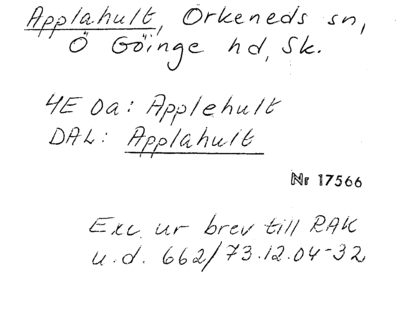 Applahult, Örkeneds sn,
Ö Göinge hd, Sk.
4E 0a: Applehult
DAL: Applahult
Nr 17566
Exc. ur brev till RAK
u.d. 662/73.12.04-32